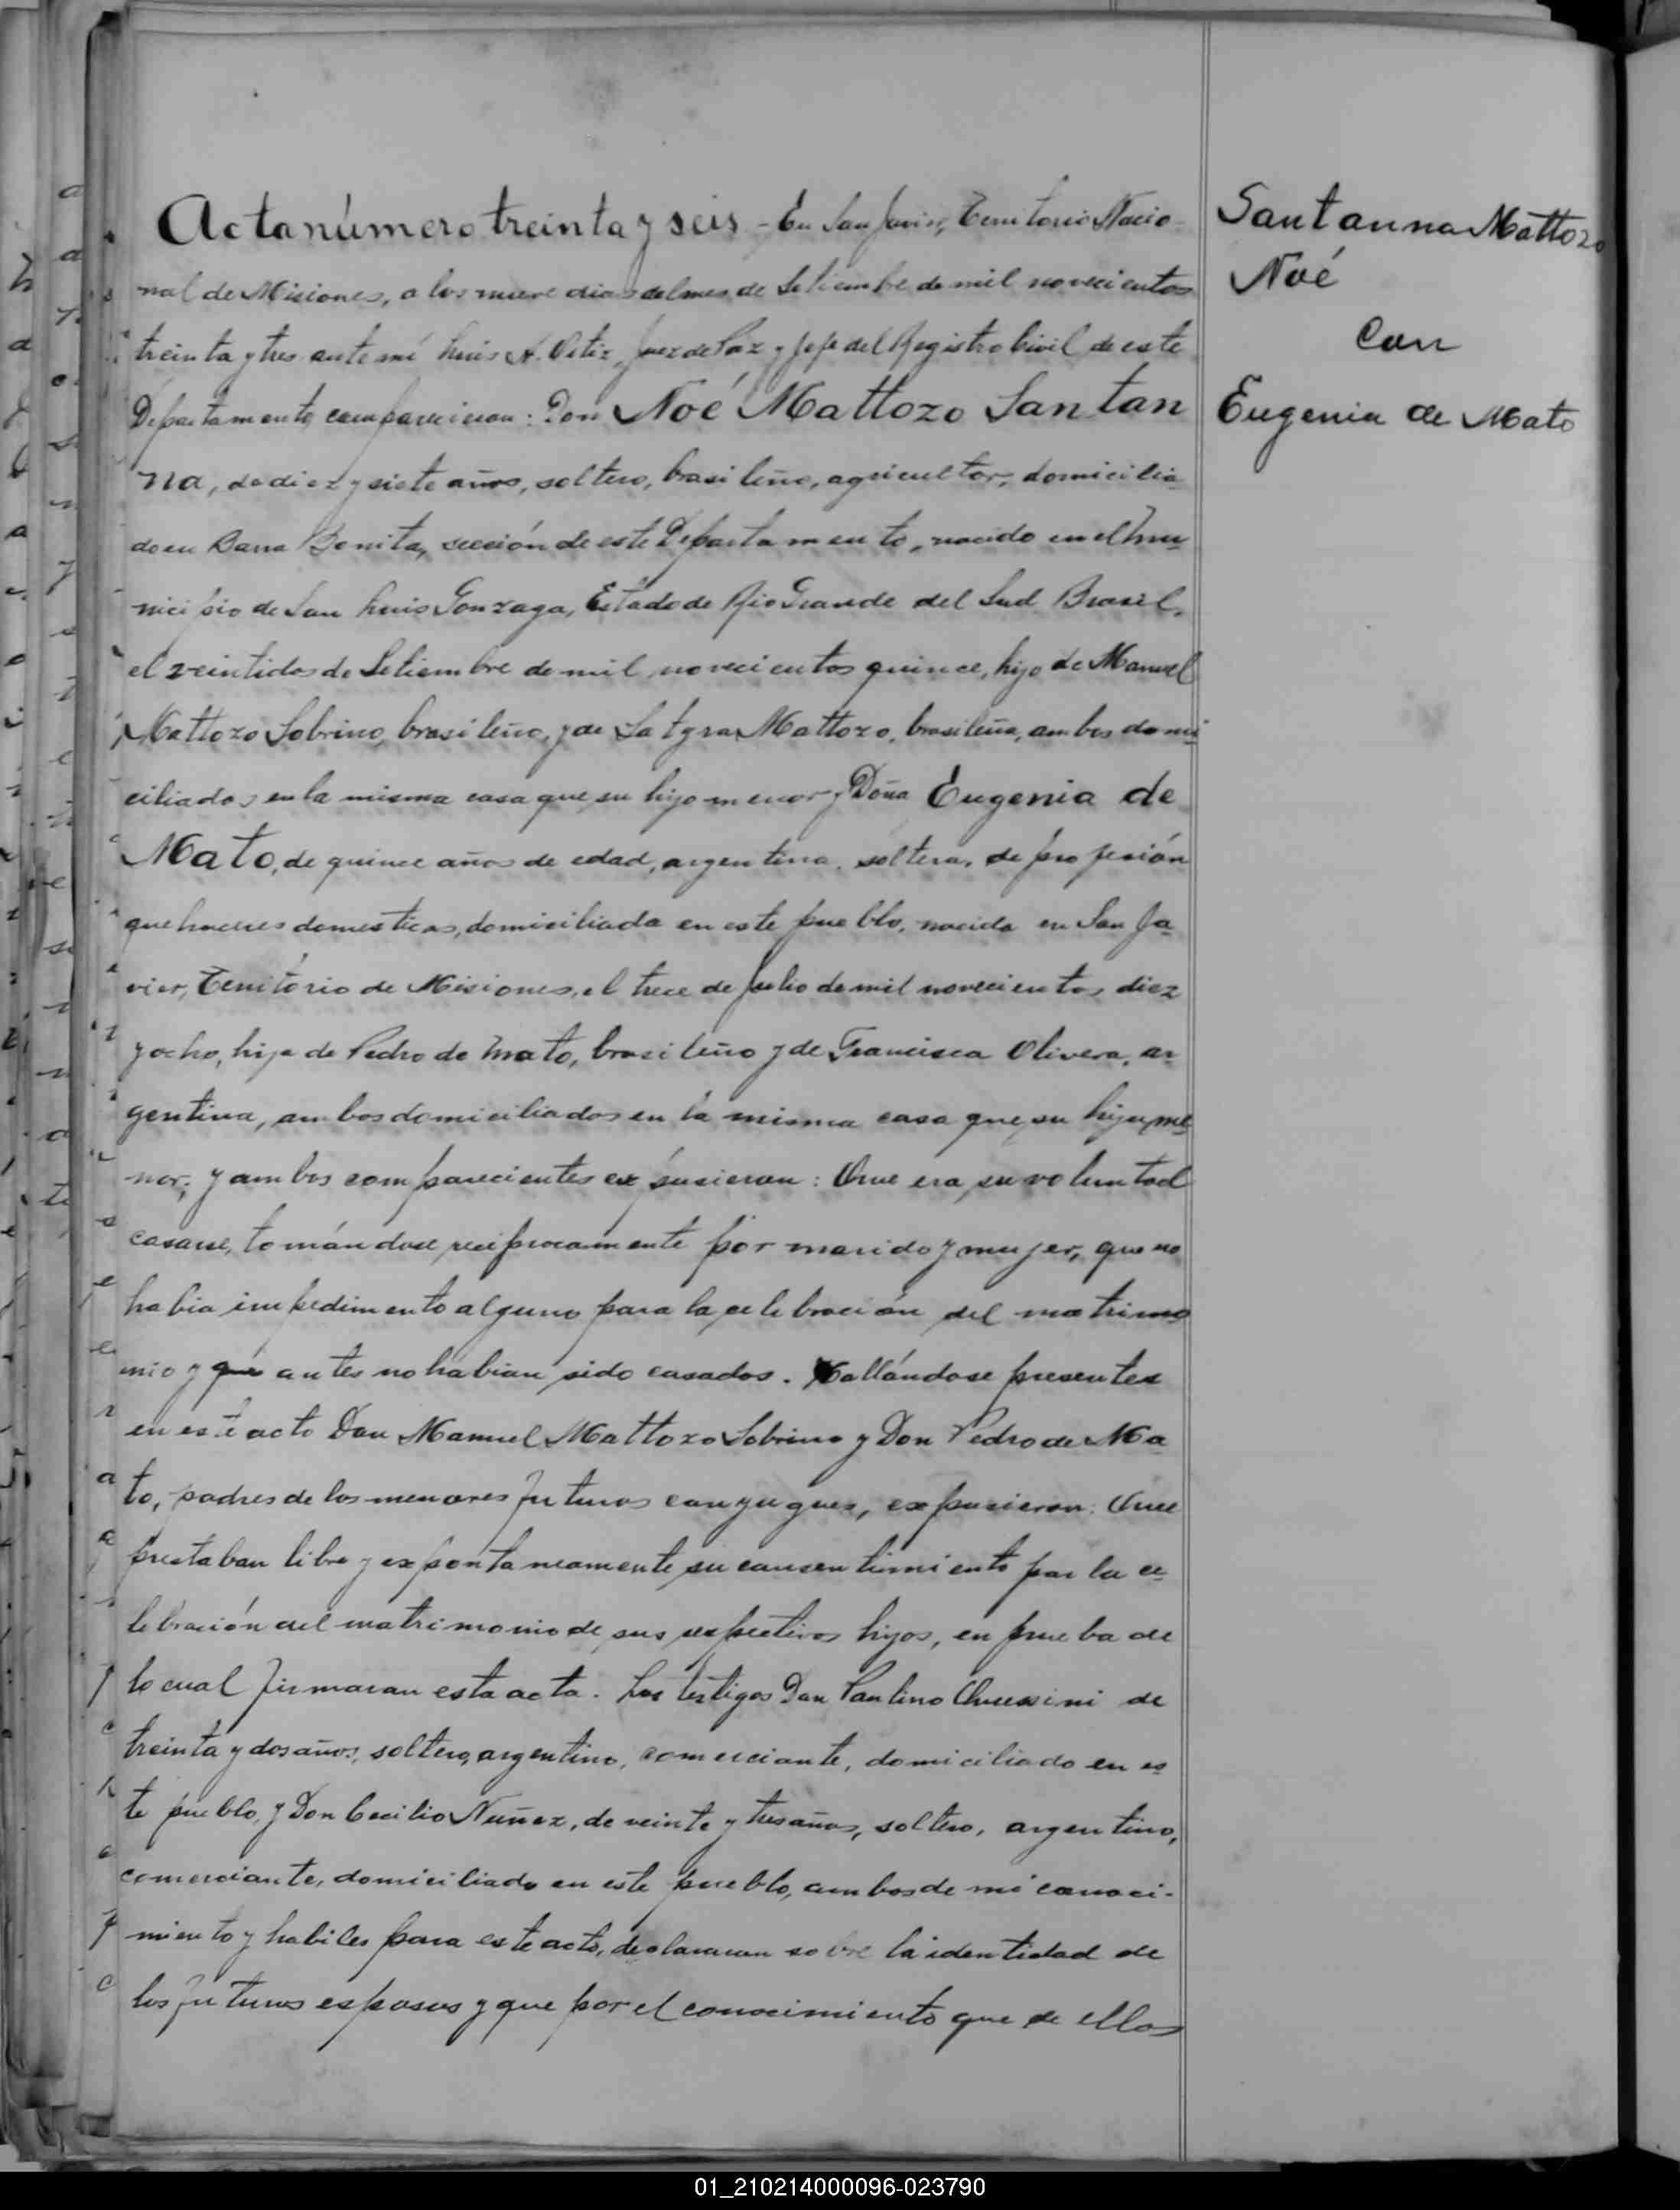 Acta número treinta y seis - En San Javier, Territorio Nacio-
nal de Misiones, a los nueve dias del mes de Setiembre de mil novecientos
treinta y tres ante mí Luis A. Ortiz, Juez de Paz y Jefe del Registro Civil de este
Departamento, comparecieron: Don Noé Mattozo Santan
na, de diez y siete años, soltero, brasileño, agricultor, domicilia-
do en Barra Bonita, sección de este Departamento, nacido en el mu
nicipio de San Luis Gonzaga, Estado de Rio Grande del Sud Brasil,
el veintidos de Setiembre de mil novecientos quince, hijo de Manuel
Mattozo Sobrino, brasileño, y de Satyra Mattozo, brasileña, ambos domi
ciliados en la misma casa que su hijo menor y Doña Eugenia de
Mato, de quince años de edad, argentina, soltera, de profesión
quehaceres domesticos, domiciliada en este pueblo, nacida en San Ja
vier, Territorio de Misiones, el trece de Julio de mil novecientos diez
y ocho, hija de Pedro de Mato, brasileño y de Francisca Olivera, ar
gentina, ambos domiciliados en la misma casa que su hija me
nor; y ambos comparecientes expusieron: Que era su voluntad
casarse, tomándose reciprocamente por marido y mujer, que no
habia impedimento alguno para la celebración del matrimo
nio y que antes no habian sido casados. Hallándose presentes
en este acto Don Manuel Mattozo Sobrino y Don Pedro de Ma
to, padres de los menores futuros conyugues, expusieron: Que
prestaban libre y expontaneamente su consentimiento par la ce
lebración del matrimonio de sus respectivos hijos, en prueba de
lo cual firmaran esta acta. Los testigos Don Paulino de
treinta y dos años, soltero, argentino, comerciante, domiciliado en es
te pueblo, y Don Cecilio Nuñez, de veinte y tres años, soltero, argentino,
comerciante, domiciliado en este pueblo, ambos de mi conoci-
miento y habiles para este acto, declararan sobre la identidad de
los futuros esposos y que por el conocimiento que de ellos
Santanna Mattozo
Noé
Con
Eugenia de Mato
01_210214000096-023790